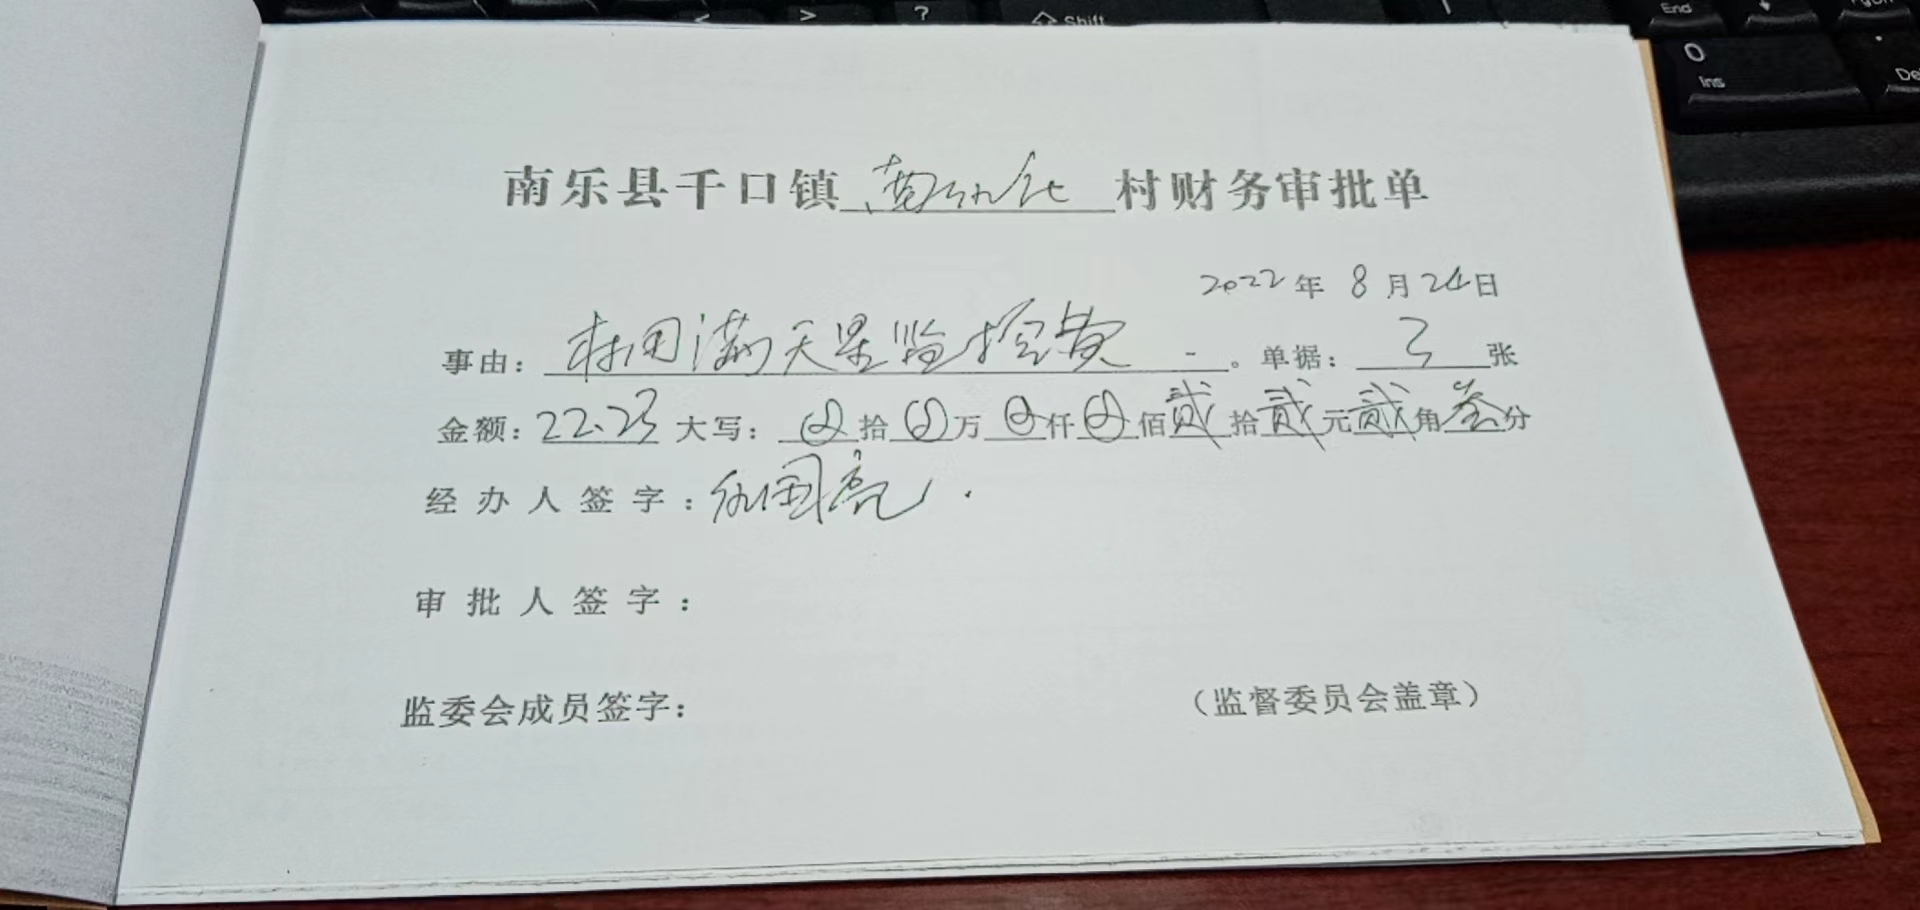 南乐县千口镇 村财务审批单
2022年8月24日
事由：村用满天星监控费 。单据：3张
金额：22.23 大写：⊗拾⊗万⊗仟⊗佰贰拾贰元贰角叁分
经办人签字：国亮
审批人签字：
监委会成员签字：
（监督委员会盖章）
< > ? Shift End PgDn 0 Ins De